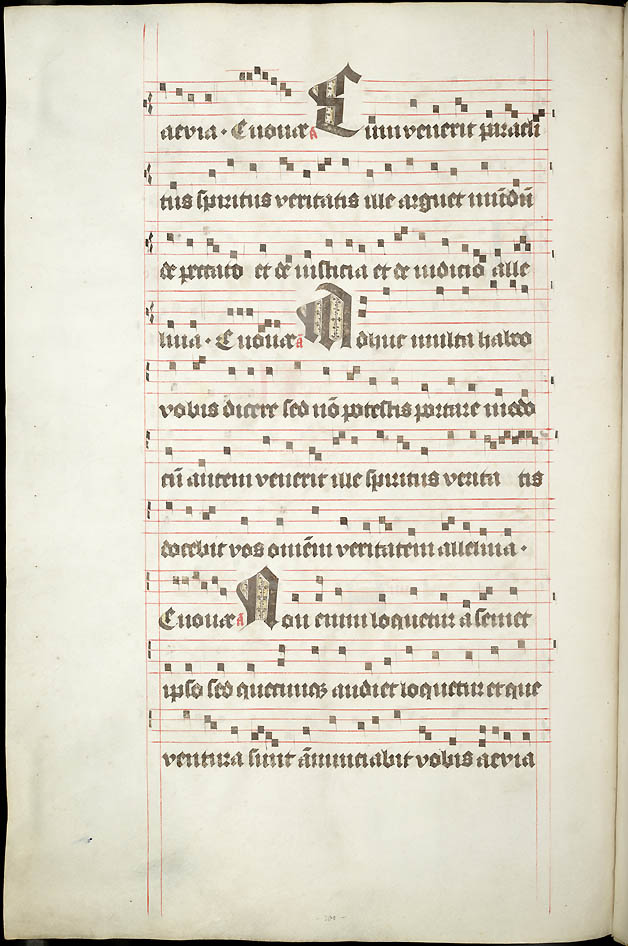 aevia · Euouae a Cum venerit paracli
tus spiritus veritatis ille arguet mūdū
de peccato et de iusticia et de iudicio alle
luia · Euouae a Adhuc multa habeo
vobis dicere sed nō potestis portare modo
cū autem venerit ille spiritus verita tis
docebit vos omēm veritatem alleluia ·
Euouae a Non enim loquetur a semet
ipso sed quecumqꝫ audiet loquetur et que
ventura sunt ānunciabit vobis aevia